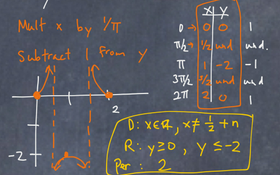 Mult x by 1/π
Subtract 1 from y
x y
0 0 0 1
π/2 1/2 und und.
π 1 -2 -1
3π/2 3/2 und und.
2π 2 0 1
2
-2
D: x∈ℝ, x≠ 1/2 + n
R: y ≥ 0, y ≤ -2
Per: 2